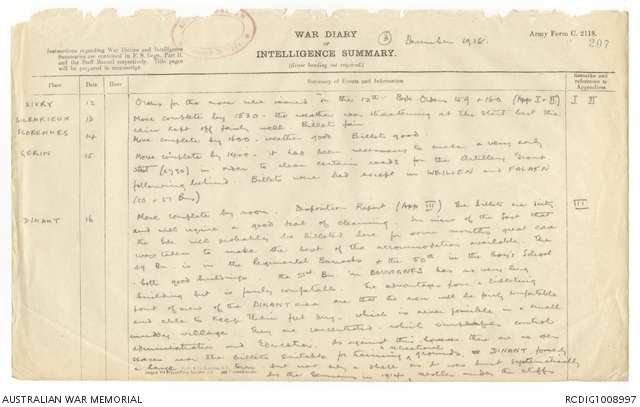 WAR DIARY
OF
INTELLIGENCE SUMMARY.
(Erase heading not required.)
3
December 1918.
Army Form C. 2118.
207
Instructions regarding War Diaries and Intelligence
Summaries are contained in F. S. Regs., Part II.
and the Staff Manual respectively. Title pages
will be prepared in manuscript.
Place Date Hour Summary of Events and Information Remarks and references to Appendices
SIVRY 12 Orders for the move were issued on the 12th. Bde Orders 149 & 150 (App I & II) I II
SILENRIEUX 13 Move complete by 1530 - the weather was threatening at the start but the
rain kept off fairly well. Billets fair
FLORENNES 14 Move complete by 1400 - weather good. Billets good
GERIN 15 Move complete by 1400 - it has been necessary to make a very early
start (0730) in order to clear certain roads for the Artillery Group
following behind. Billets were bad except in WEILLEN and FALAEN
(50 & 51 Bns)
DINANT 16 Move complete by noon. Disposition Report (App III) The billets are dirty III
and will require a good deal of cleaning. In view of the fact that
the Bde will probably be billeted here for some months great care
was taken to make the best of the accommodation available. The
49 Bn. is in the Regimental Barracks & the 50th in the Boys School
- both good buildings - the 51st Bn. in BOUVIGNES has no very big
building but is fairly comfortable. The advantages from a billeting
point of view of the DINANT area are that the men will be fairly comfortable
and able to keep their feet dry - which is never possible in a small
muddy village. They are concentrated - which simplifies control
administration and Education. As against this however there are no open
spaces near the billets suitable for training & recreational grounds. DINANT formerly
a large town but now only a shell as it was burnt systematically
by the Germans in 1914, nestles under the cliffs
AUSTRALIAN WAR MEMORIAL
RCDIG1008997